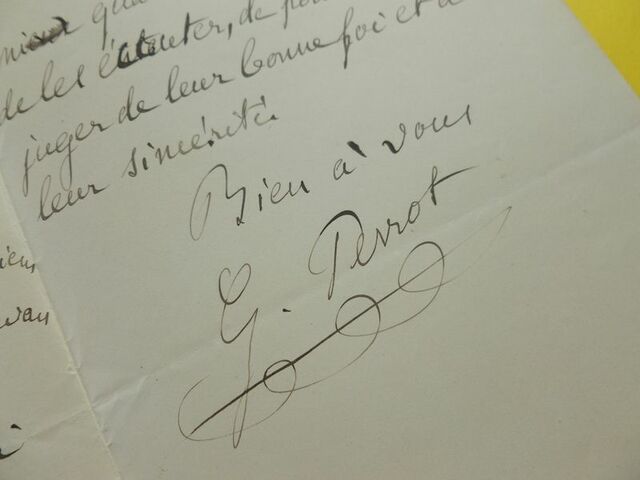 qua
de les écouter, de po
juger de leur bonne foi et d
leur sincérité.
Bien à vous
G. Perrot
iens
van